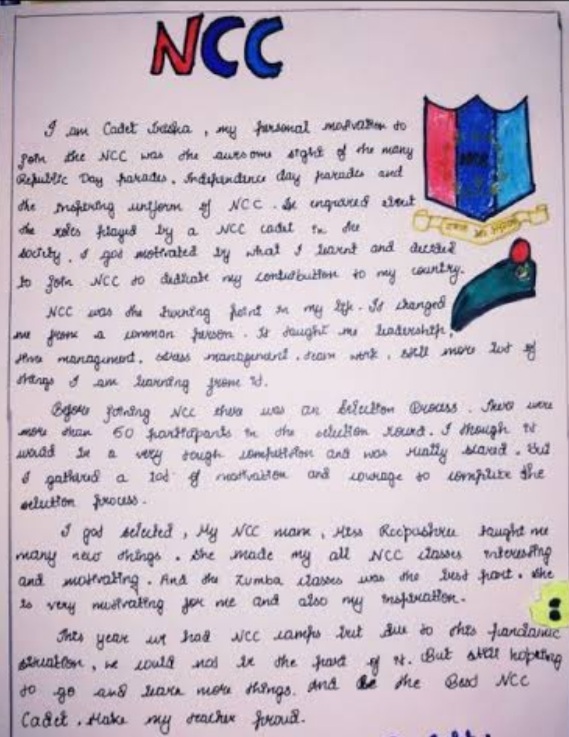 NCC
I am Cadet , my personal motivation to
join the NCC was the awesome sight of the many
Republic Day parades, Independence day parades and
the inspiring uniform of NCC. enquired about
the roles played by a NCC cadet in the
society. I got motivated by what I learnt and decided
to join NCC to dedicate my contribution to my country.
NCC was the turning point in my life. It changed
me from a common person. It taught me leadership,
time management, stress management, team work, still more lot of
things I am learning from it.
Before joining NCC there was an Selection Process. There were
more than 60 participants in the selection round. I though it
would be a very tough competition and was really scared. But
I gathered a lot of motivation and courage to complete the
selection process.
I got selected, My NCC mam, Miss taught me
many new things. She made my all NCC classes interesting
and motivating. And the Zumba classes was the best part. She
is very motivating for me and also my inspiration.
This year we had NCC camps but due to this pandamic
situation, we could not be the part of it. But still hopting
to go and learn more things. And Be the Best NCC
Cadet. Make my teacher proud.